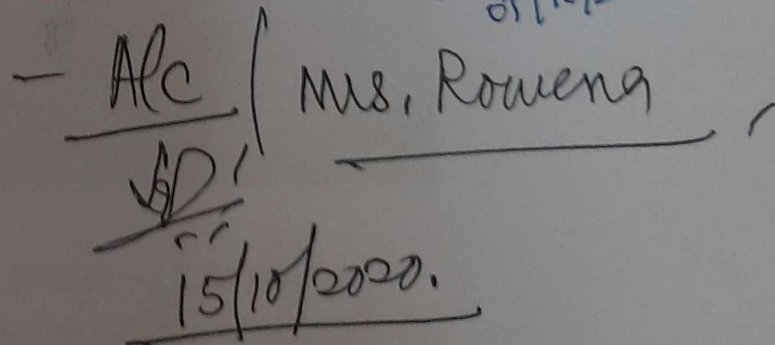 - Alc / Ms. Rowena
15/10/2020.